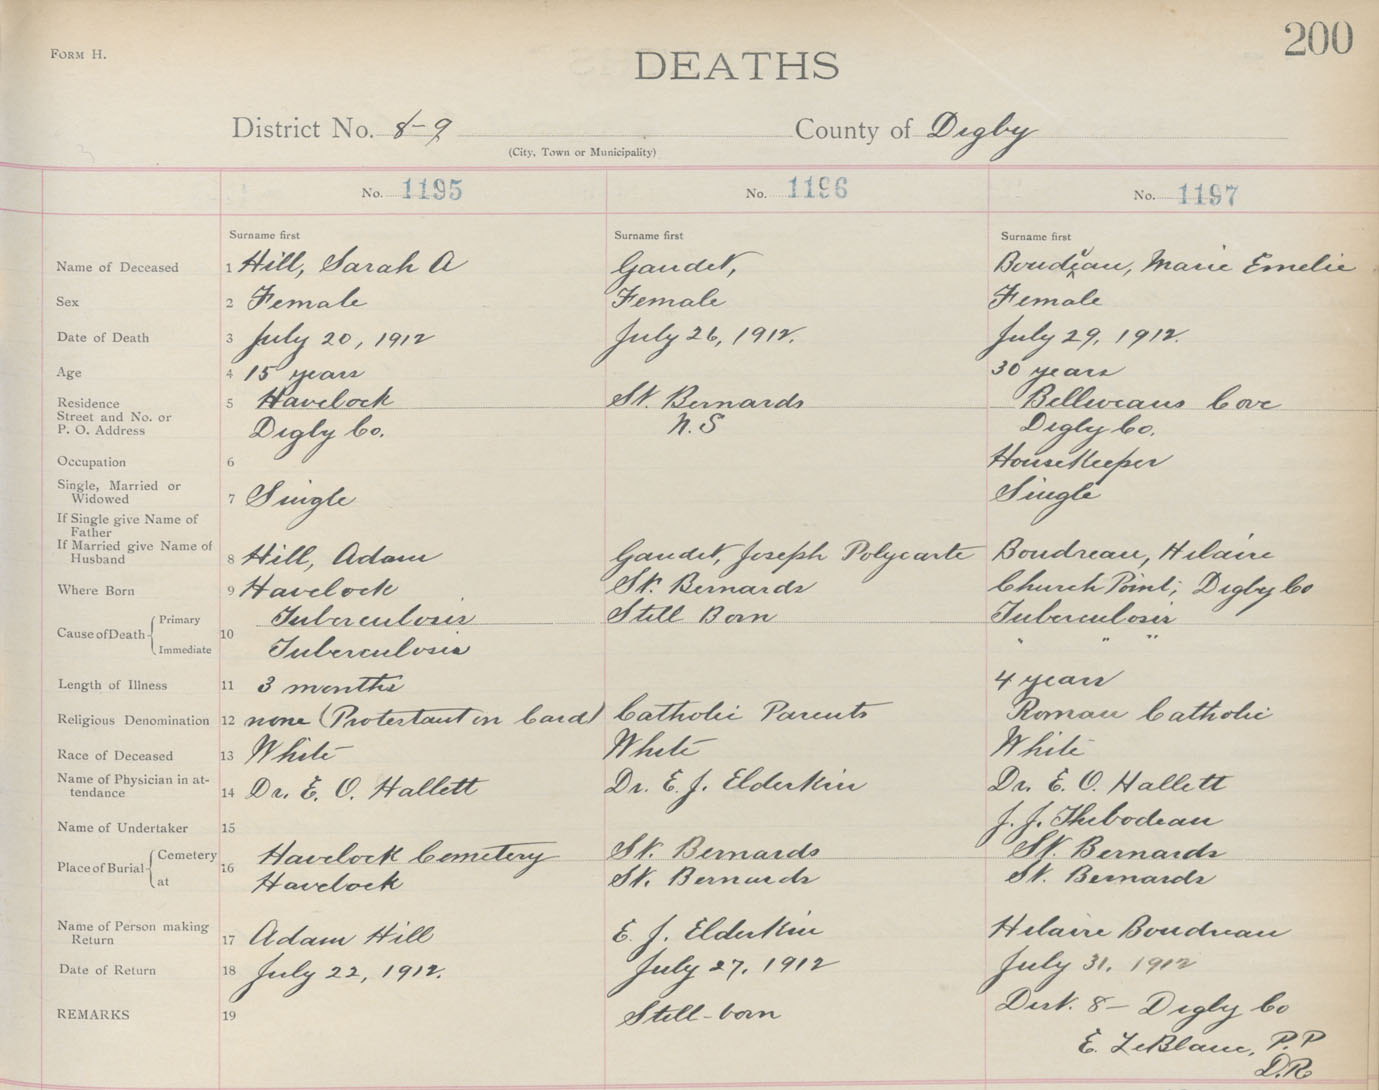 FORM H.
200
DEATHS
District No. 8-9
County of Digby
(City, Town or Municipality)
No. 1195 No. 1196 No. 1197
Surname first Surname first Surname first
Name of Deceased 1 Hill, Sarah A Gaudet, Boudreau, Marie Emelie
Sex 2 Female Female Female
Date of Death 3 July 20, 1912 July 26, 1912. July 29, 1912.
Age 4 15 years 30 years
Residence 5 Havelock St. Bernards Belliveaus Cove
Street and No. or
P. O. Address Digby Co. N.S Digby Co.
Occupation 6 HouseKeeper
Single, Married or
Widowed 7 Single Single
If Single give Name of
Father
If Married give Name of
Husband 8 Hill, Adam Gaudet, Joseph Polycarte Boudreau, Hilaire
Where Born 9 Havelock St. Bernards Church Point, Digby Co
Cause of Death Primary 10 Tuberculosis Still Born Tuberculosis
Immediate Tuberculosis " " "
Length of Illness 11 3 months 4 years
Religious Denomination 12 none (Protestant on Card) Catholic Parents Roman Catholic
Race of Deceased 13 White White White
Name of Physician in at-
tendance 14 Dr. E. O. Hallett Dr. E. J. Elderkin Dr. E. O. Hallett
Name of Undertaker 15 J. J. Thebodeau
Place of Burial Cemetery 16 Havelock Cemetery St. Bernards St. Bernards
at Havelock St. Bernards St. Bernards
Name of Person making
Return 17 Adam Hill E. J. Elderkin Hilaire Boudreau
Date of Return 18 July 22, 1912. July 27, 1912 July 31, 1912
REMARKS 19 Still-born Dist. 8 - Digby Co
E. LeBlanc, P.P
D.R